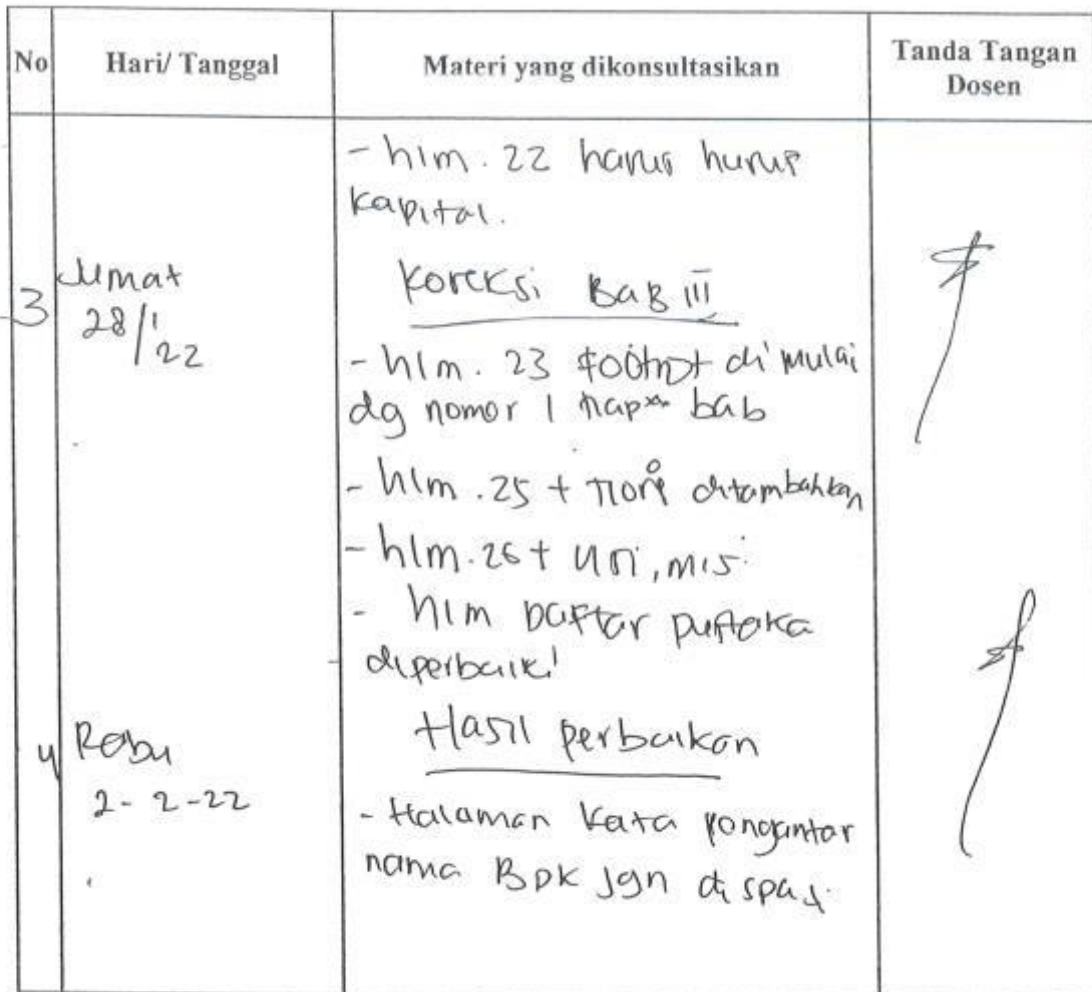 No
Hari/ Tanggal
Materi yang dikonsultasikan
Tanda Tangan
Dosen
- hlm. 22 harus huruf
kapital.
3
Jumat
28/1/22
Koreksi BAB III
- hlm. 23 footnot di mulai
dg nomor 1 tiap bab
- hlm. 25 + ditambahkan
- hlm. 26 + Visi, misi
- hlm Daftar Pustaka
diperbaiki
4
Rabu
2-2-22
Hasil perbaikan
- Halaman Kata pengantar
nama Bpk jgn di